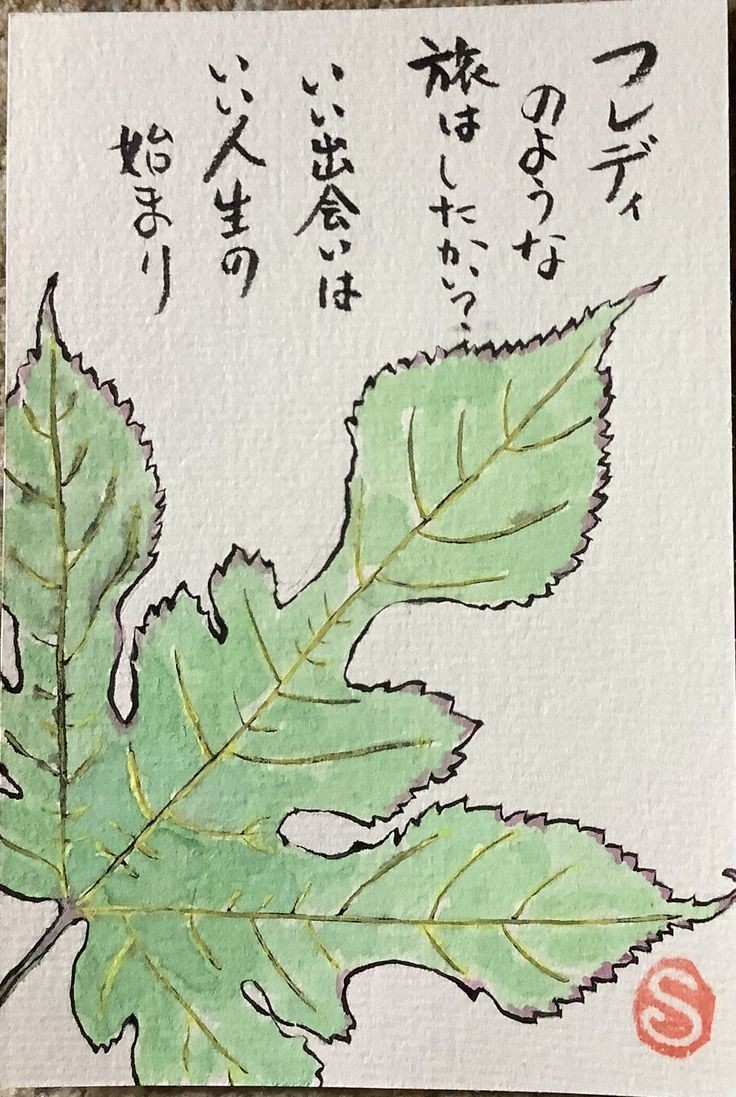 フレディ
のような
旅はしたかい?
いい出会いは
いい人生の
始まり
S